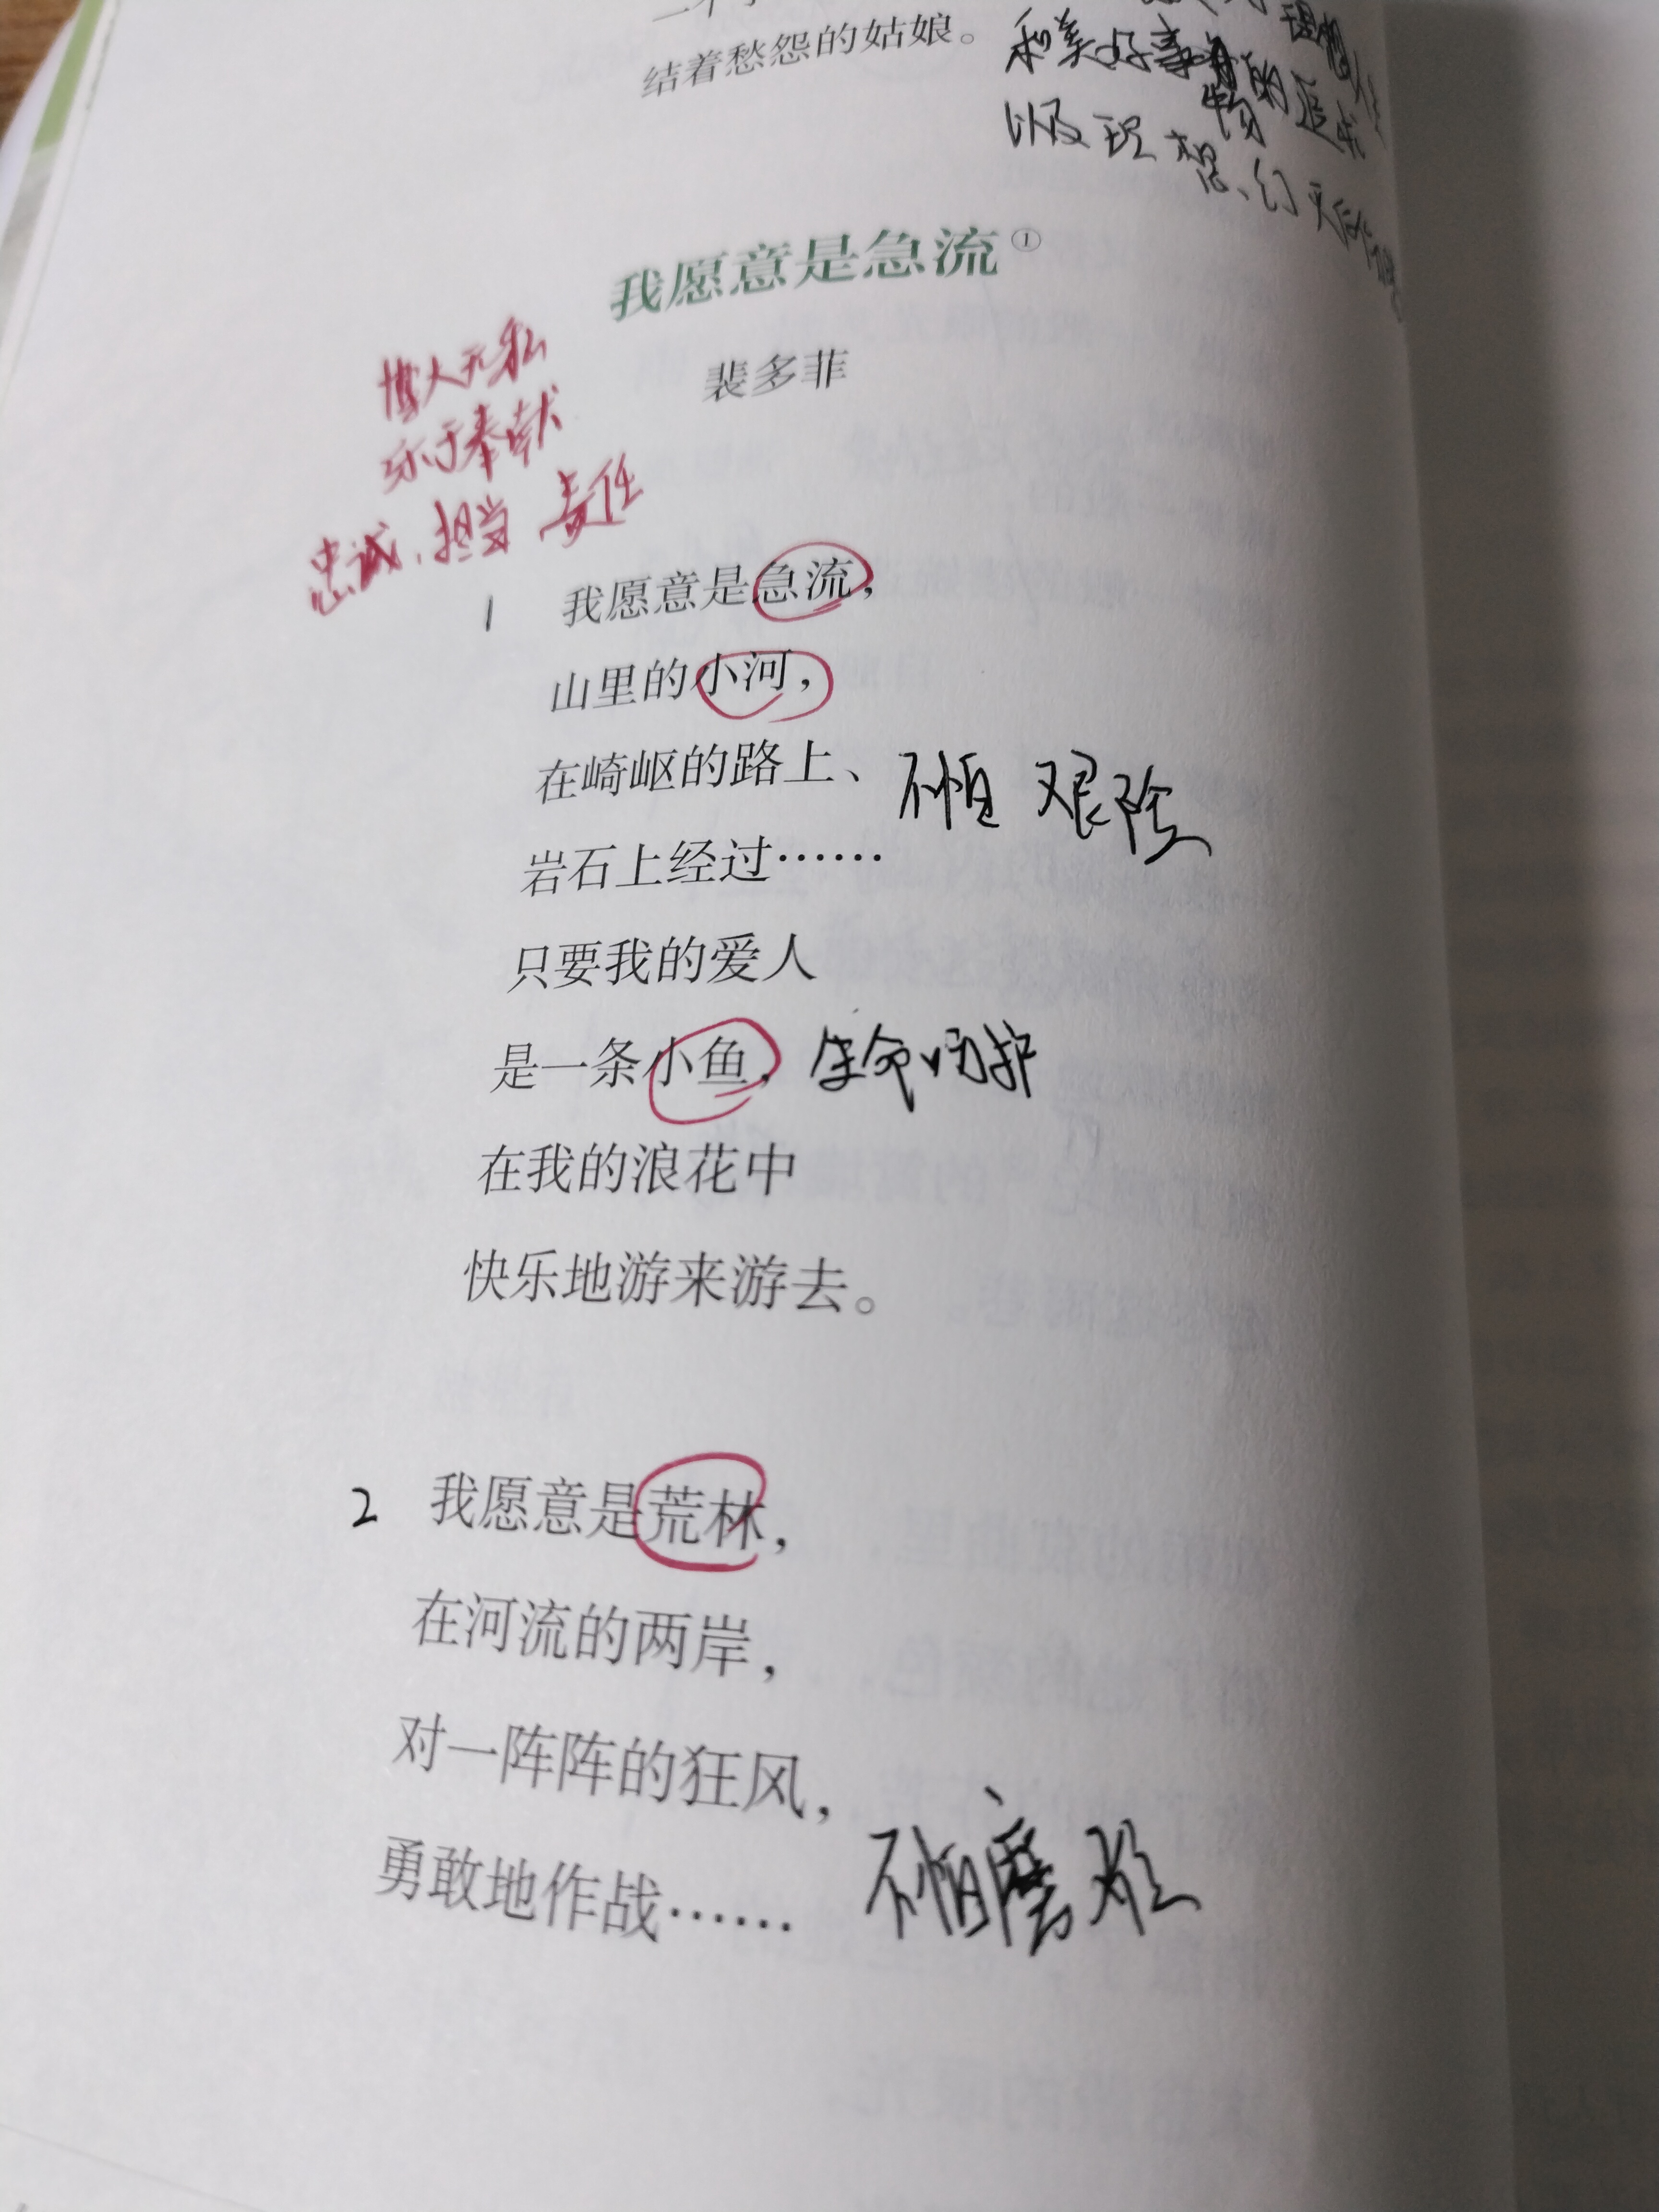 结着愁怨的姑娘。
和美好事物的追求
以及理想、幻灭后
我愿意是急流①
裴多菲
博大无私
乐于奉献
忠诚、担当 责任
1 我愿意是急流,
山里的小河,
在崎岖的路上、 不怕艰险
岩石上经过……
只要我的爱人
是一条小鱼, 生命呵护
在我的浪花中
快乐地游来游去。
2 我愿意是荒林,
在河流的两岸,
对一阵阵的狂风,
勇敢地作战…… 不怕磨难